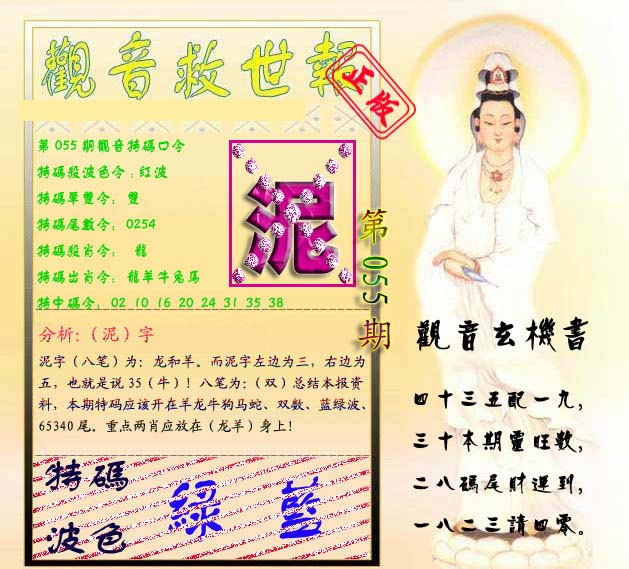 觀音救世報
正版
第055期觀音特碼口令
特碼殺波色令:紅波
特碼單雙令: 雙
特碼尾數令: 0254
特碼殺肖令: 龍
特碼出肖令: 龍羊牛兔馬
特中碼令: 02 10 16 20 24 31 35 38
泥
第055期
分析:(泥)字
泥字(八笔)为:龙和羊。而泥字左边为三,右边为
五,也就是说35(牛)!八笔为:(双)总结本报资
料,本期特码应该开在羊龙牛狗马蛇、双数、蓝绿波、
65340尾。重点两肖应放在(龙羊)身上!
特碼
波色
綠 藍
觀音玄機書
四十三五配一九,
三十本期靈旺數,
二八碼尾財運到,
一八二三請四零。